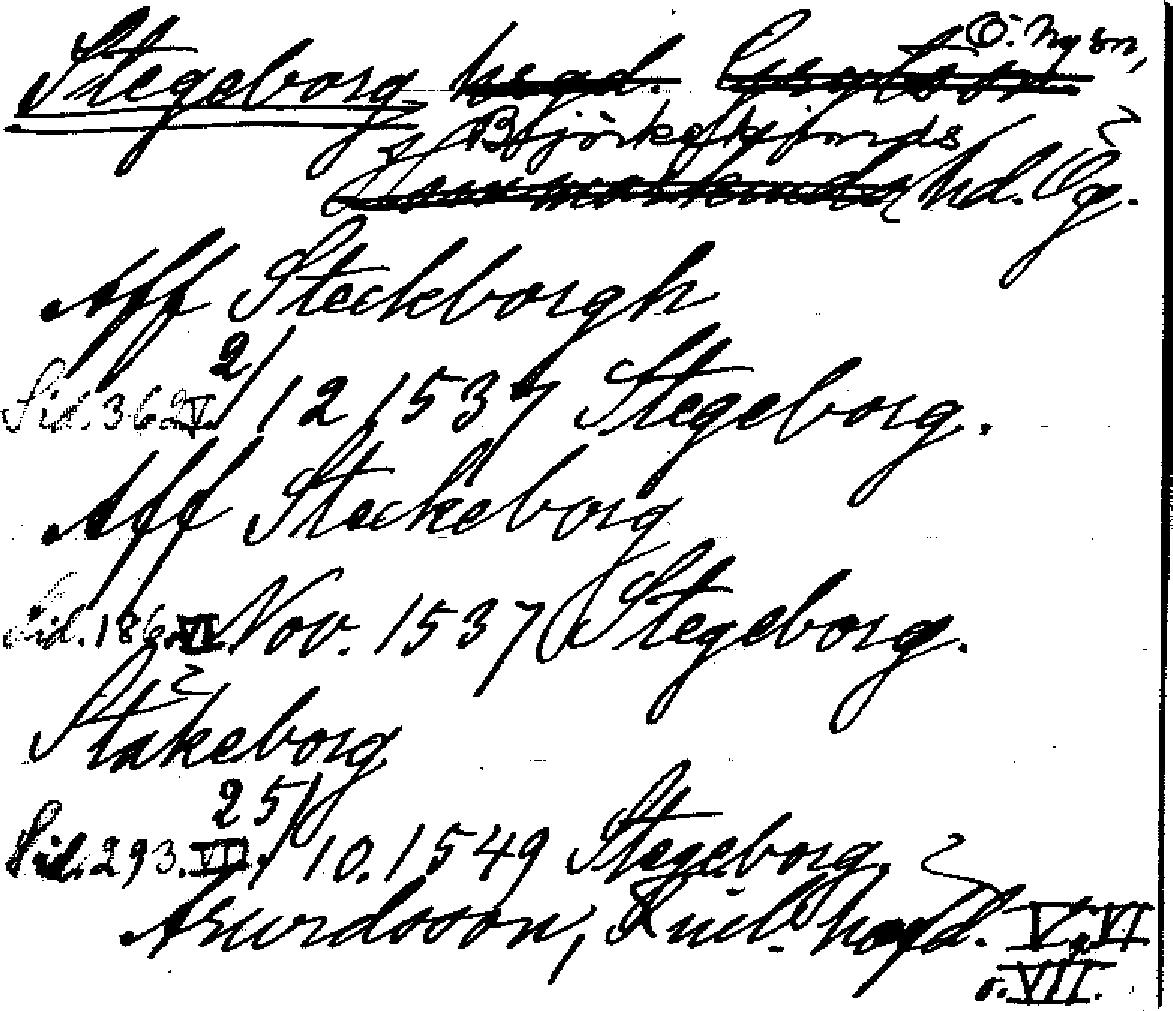 Stegeborg hegd. Ö. Ny sn,
Björkekinds
hd. Ög.
Aff Steckborgh
Sid. 362 V. 2/12 1537 Stegeborg.
Aff Steckeborg
Sid. 186. VI. Nov. 1537 Stegeborg.
Stäkeborg
Sid. 293. VII. 25/10. 1549 Stegeborg,
Asurdsson, hogd. V, VI
o. VII.